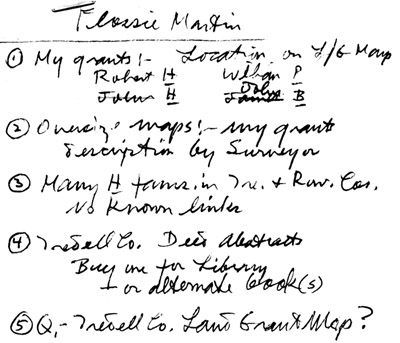 Flossie Martin
① My grants:- Location on L/G Map
Robert H William P
John H John B
② Oversize maps:- my grant
description by Surveyor
③ Many H fams. in Ire. + Row. Cos.
No Known links
④ Iredell Co. Deed Abstracts
Buy one for Library
- or alternate book(s)
⑤ Q.- Iredell Co. Land Grant Map?